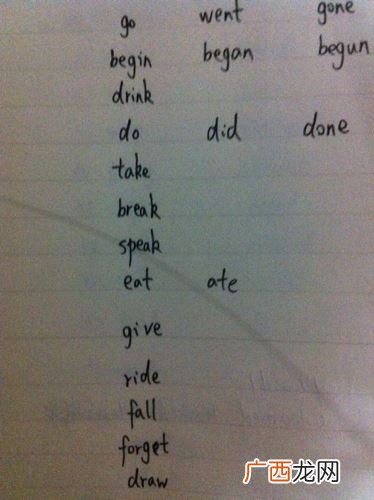 go went gone
begin began begun
drink
do did done
take
break
speak
eat ate
give
ride
fall
forget
draw
广西龙网